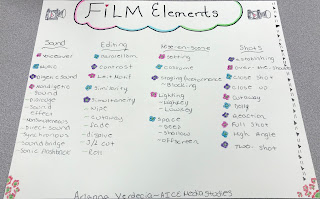 FiLM Elements
Sound
Voiceover
Music
Diegetic Sound
Nondiegetic
Sound
- Dialogue
- Sound
effect
- Direct Sound
- Synchronous
- Sound Bridge
- Sonic Flashback
Editing
Parallelism
Contrast
Leit Motif
Similarity
Simultaneity
- Wipe
- Cutaway
- fade
- dissolve
- J/L cut
- Roll
Mise-en-Scène
Setting
Costume
Staging/Performance
- Blocking
Lighting
- Highkey
- Lowkey
Space
- Deep
- Shallow
- offscreen
Shots
Establishing
Over-the-Shoulder
Close shot
Close up
Cutaway
Dolly
Reaction
Full Shot
High Angle
Two-Shot
Arianna Verdecia-AICE Media Studies